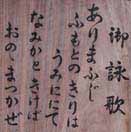 御詠歌
ありまふじ
ふもとのきりは
うみににて
なみかときけば
おのゝまつかぜ